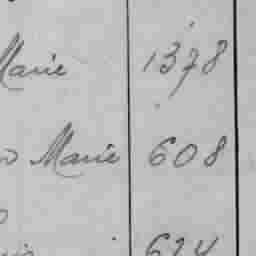 Marie 1378
Marie 608
624